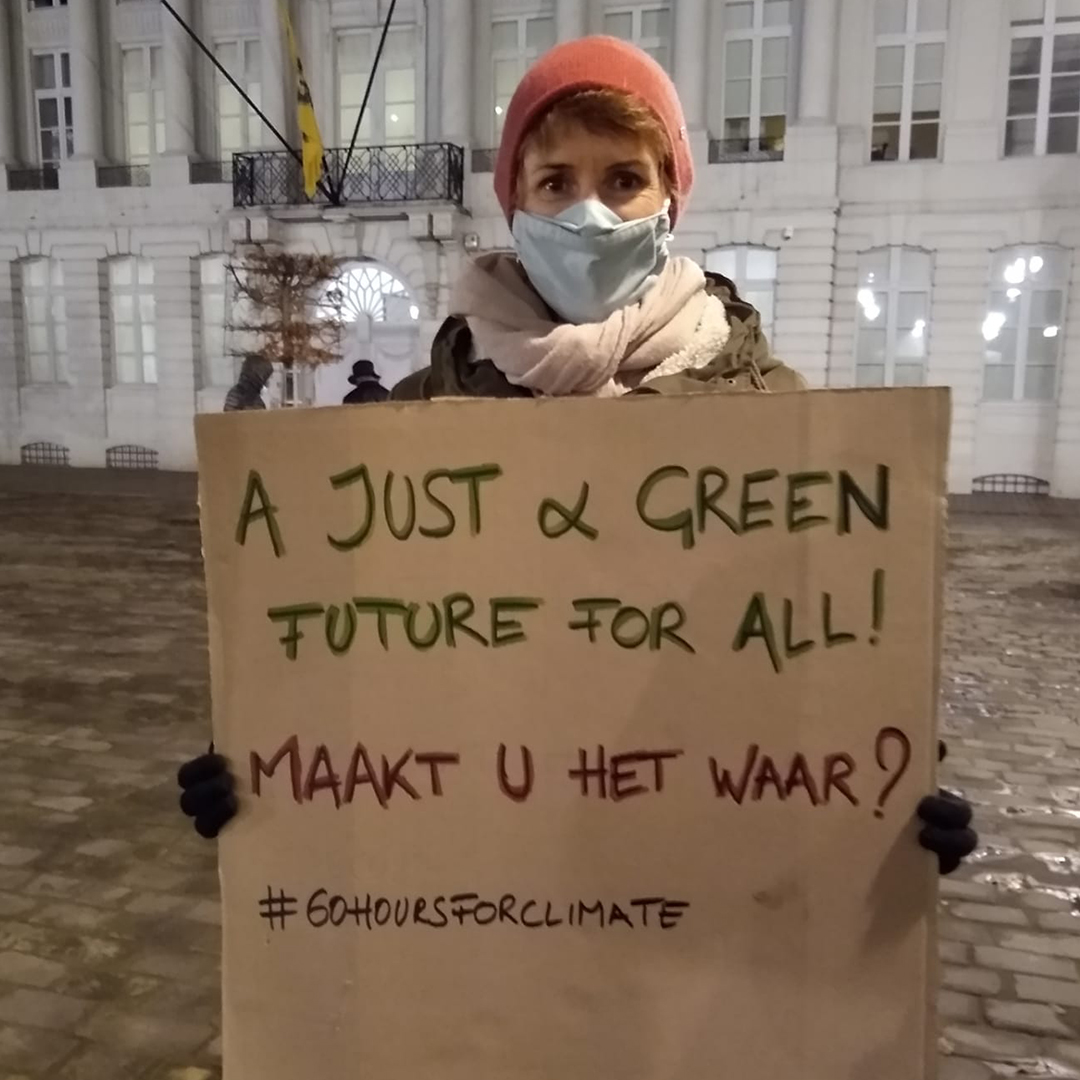 A JUST & GREEN
FUTURE FOR ALL!
MAAKT U HET WAAR?
#60HOURSFORCLIMATE